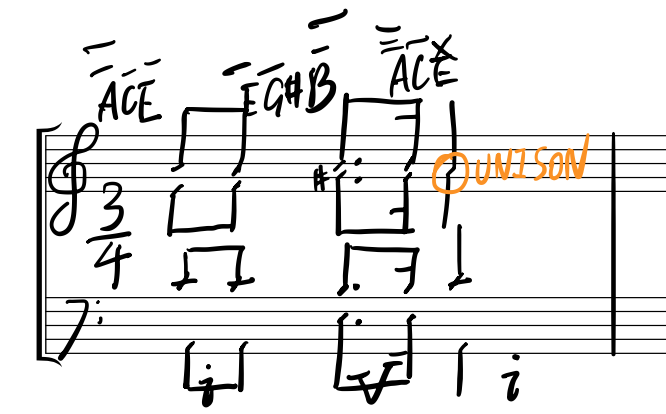 ACE EG#B ACE
UNISON
3
4
i V i